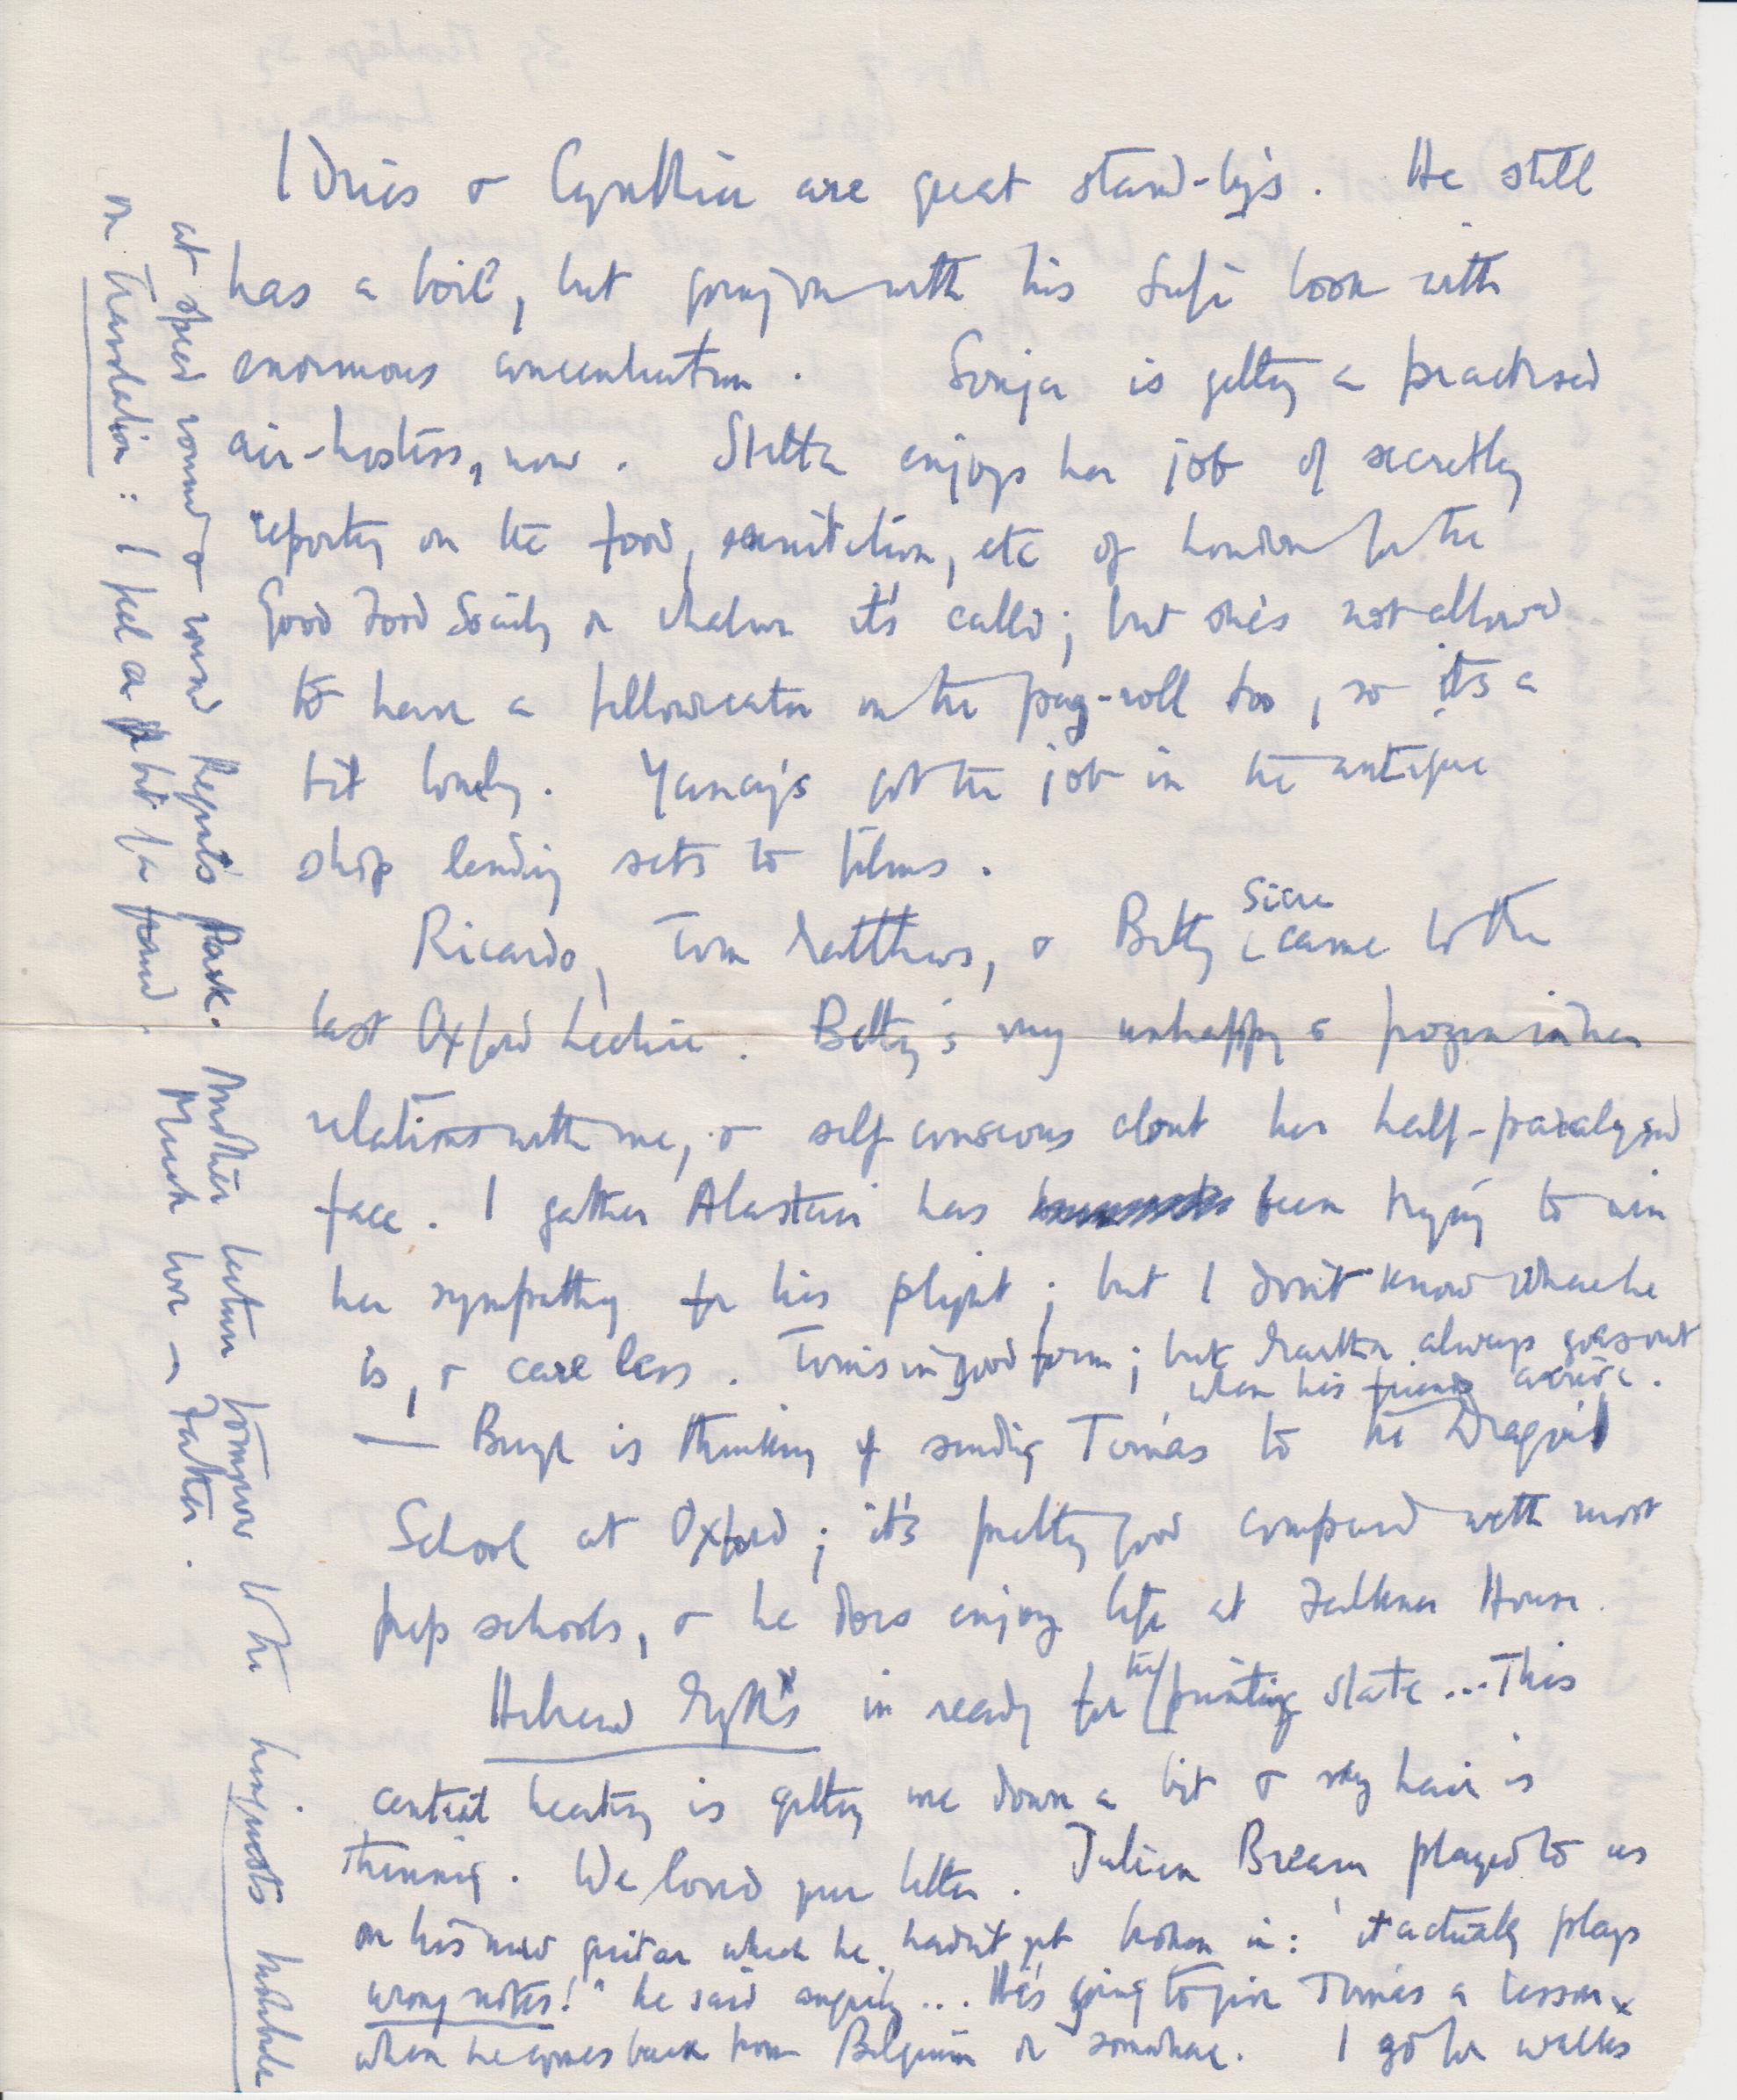 Idries & Cynthia are great stand-bys. He still
has a boil, but going on with his Sufi book with
enormous concentration. Sonja is getting a practised
air-hostess, now. Stella enjoys her job of secretly
reporting on the food, sanitation, etc of London for the
Good Food Society or whatever it's called; but she's not allowed
to have a fellow eater on the pay-roll too, so it's a
bit lonely. Yancy's got the job in the antique
shop lending sets to films.
Ricardo, Tom Matthews, & Betty Sicre came to the
last Oxford Lecture. Betty's very unhappy & frozen in her
relations with me, & self conscious about her half-paralysed
face. I gather Alastair has been trying to win
her sympathy for his plight; but I don't know where he
is, & care less. Tom's in good form; but Martha always goes out
when his friends arrive.
— Beryl is thinking of sending Tomás to the Dragon
School at Oxford; it's pretty good compared with most
prep schools, & he does enjoy life at Falkner House.
Hebrew Myths in ready for the printing state... This
central heating is getting me down a bit & my hair is
thinning. We loved your letter. Julian Bream played to us
on his new guitar which he hadn't yet broken in: 'it actually plays
wrong notes!' he said angrily... He's going to give Tomás a lesson
when he comes back from Belgium or somewhere. I go for walks
at speed round & round Regents Park. Another lecture tomorrow to the Linguists Institute
on Translation: I feel a bit of a fraud.
Much love – Father.